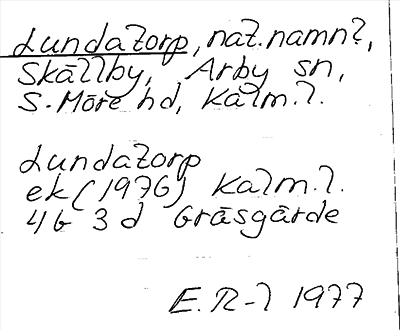 Lundatorp, nat.namn?,
Skällby, Arby sn,
S. Möre hd, Kalm.l.
Lundatorp
ek (1976) Kalm.l.
4G 3d Gräsgärde
E.R-l 1977